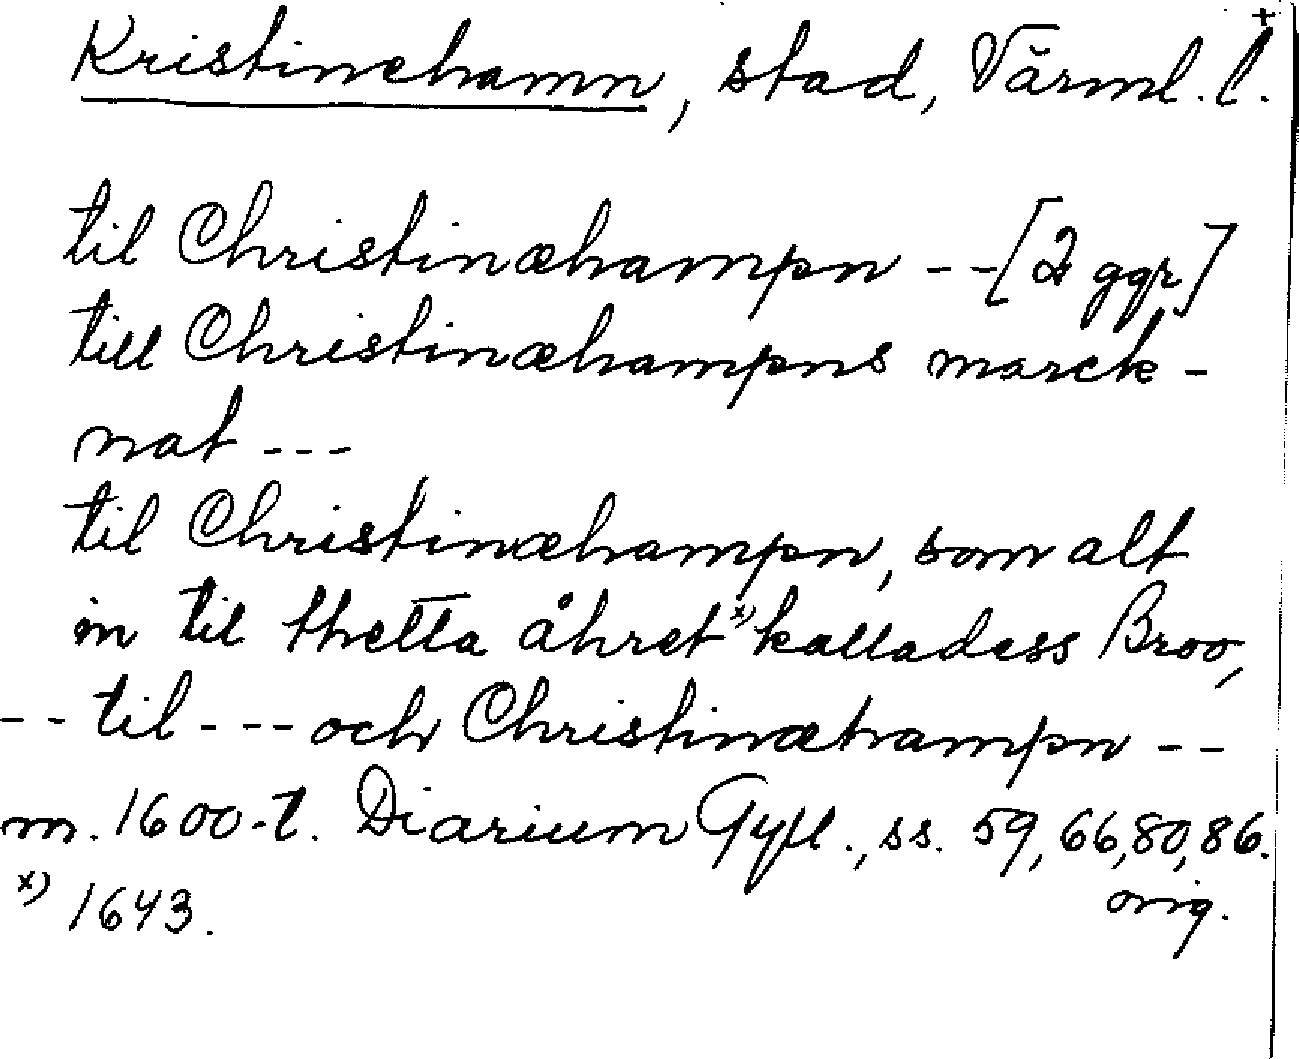 Kristinehamn, stad, Värml. l.+
til Christinæhampn -- [2 ggr]
till Christinæhampns marck-
nat ---
til Christinæhampn, som alt
in til thetta åhret x) kalladess Broo,
-- til --- och Christinæhampn --
m. 1600-t. Diarium Gyll., ss. 59, 66, 80, 86.
x) 1643. orig.